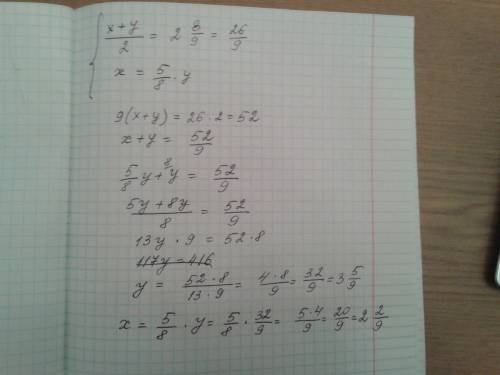 { (x+y)/2 = 2 8/9 = 26/9
x = 5/8 · y
9(x+y) = 26·2 = 52
x+y = 52/9
5/8 y + ⁸y = 52/9
(5y+8y)/8 = 52/9
13y · 9 = 52·8
117y = 416
y = (52·8)/(13·9) = (4·8)/9 = 32/9 = 3 5/9
x = 5/8 · y = 5/8 · 32/9 = (5·4)/9 = 20/9 = 2 2/9